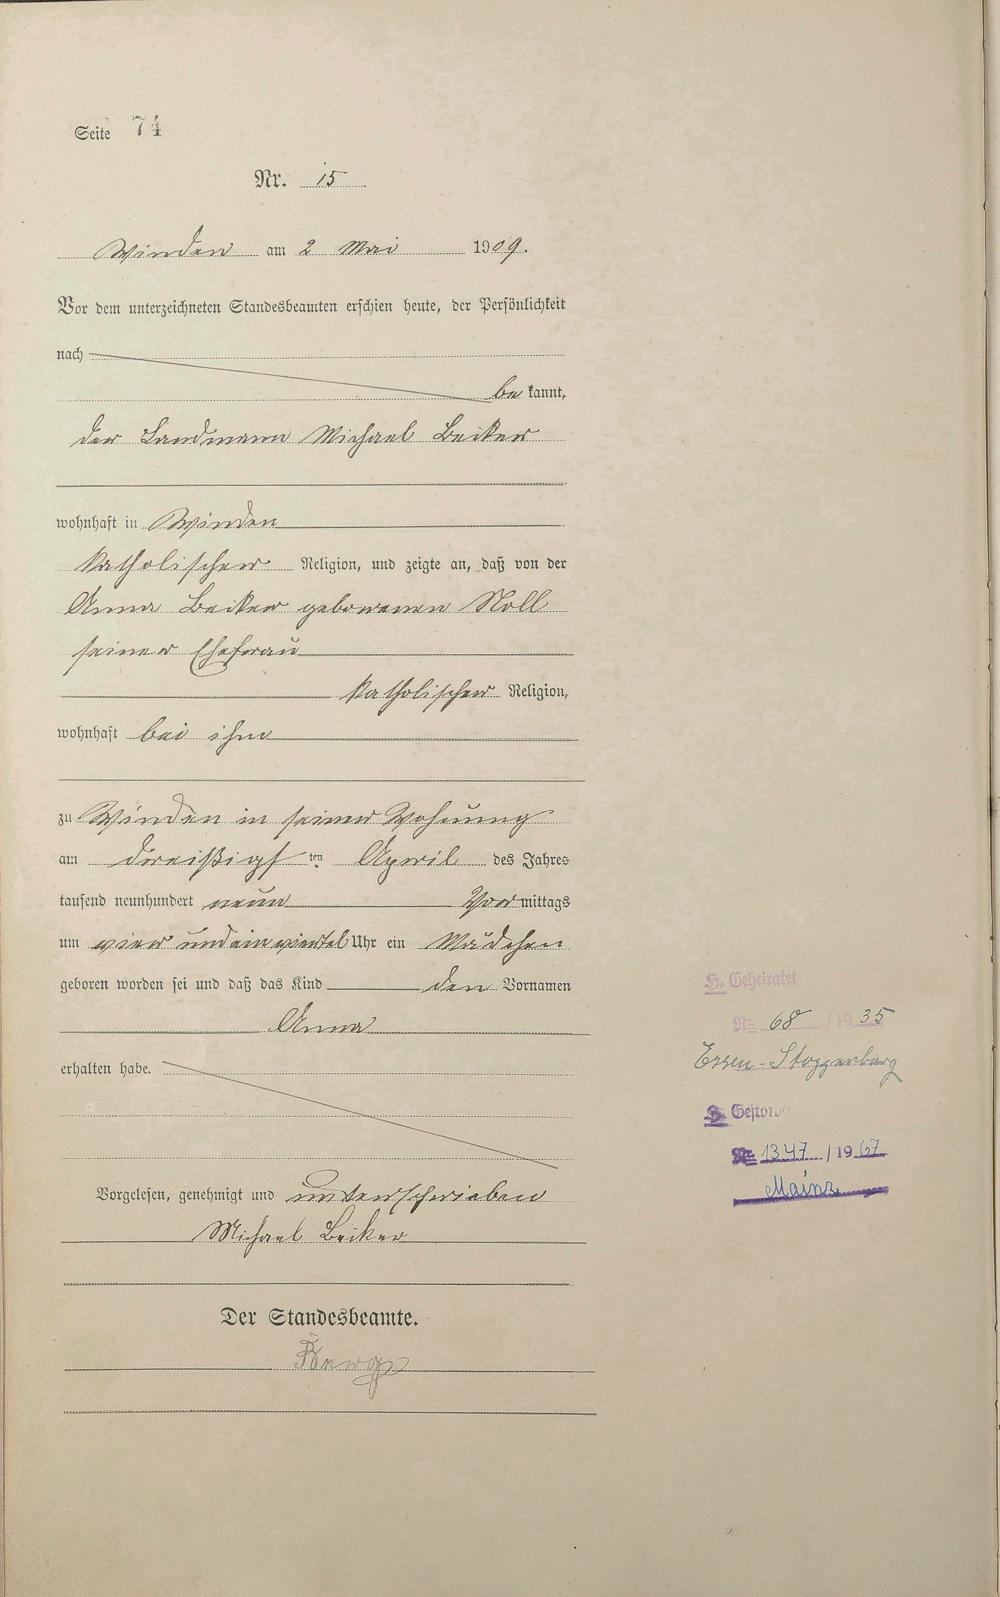 Seite 74
Nr. 15
Winden am 2 Mai 1909.
Vor dem unterzeichneten Standesbeamten erschien heute, der Persönlichkeit
nach
be kannt,
der Landmann Michael Becker
wohnhaft in Winden
katholischer Religion, und zeigte an, daß von der
Anna Becker geborenen Noll
seiner Ehefrau
katholischer Religion,
wohnhaft bei ihm
zu Winden in seiner Wohnung
am dreißigsten April des Jahres
tausend neunhundert neun Vormittags
um vier undein viertel Uhr ein Mädchen
geboren worden sei und daß das Kind den Vornamen
Anna
erhalten habe.
Vorgelesen, genehmigt und unterschrieben
Michael Becker
Der Standesbeamte.
H. Geheiratet
Nr. 68 / 1935
Essen-Stoppenberg
Nr. 1347 / 1967
Mainz